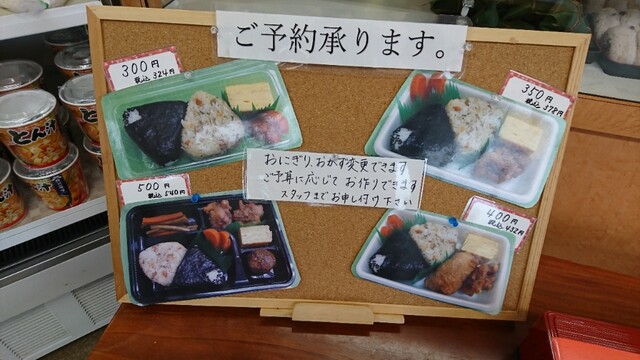 ご予約承ります。
300円
税込 324円
350円
税込 378円
おにぎり、おかず変更できます
ご予算に応じて お作りできます
スタッフまでお申し付け下さい
500円
税込 540円
400円
税込 432円
とん汁